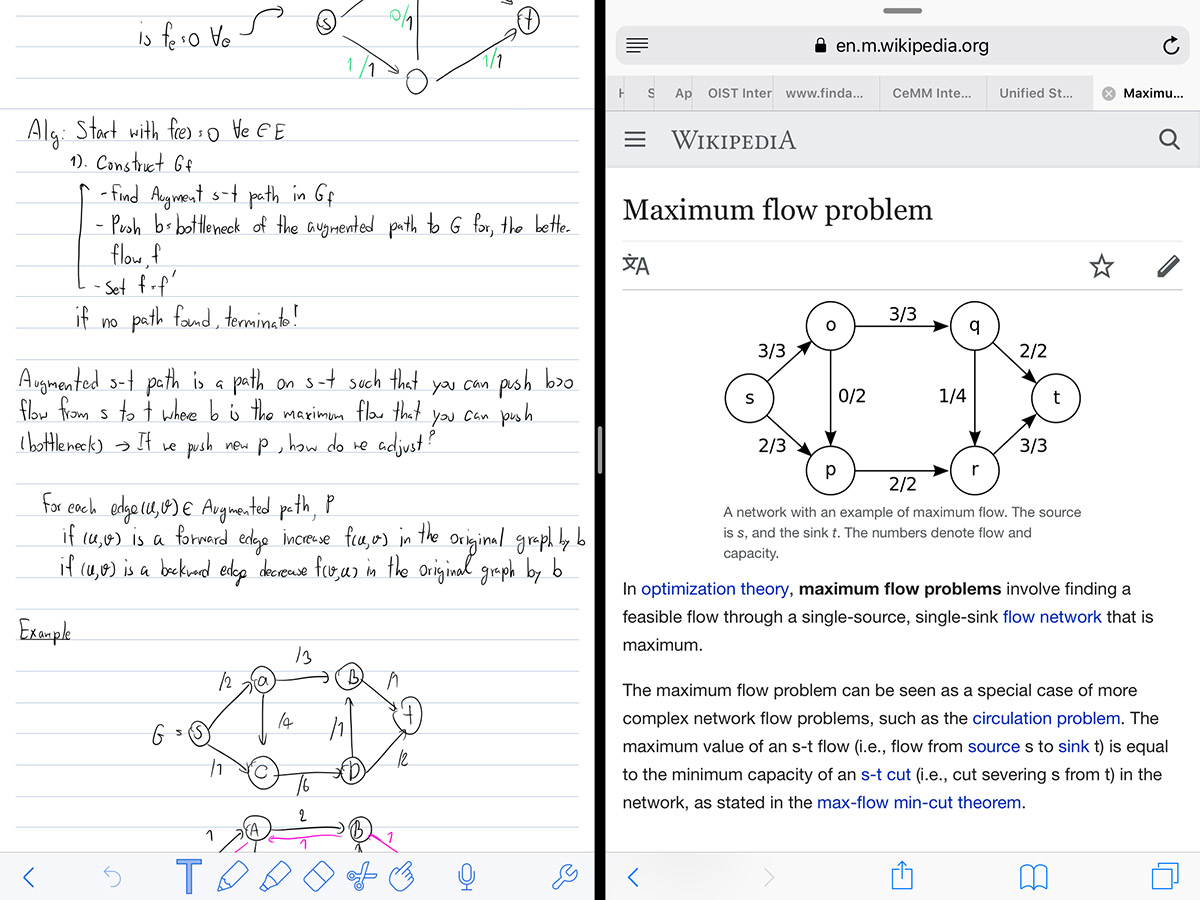 is fe=0 ∀e
s
0/1
t
1/1
1/1
Alg: Start with f(e)=0 ∀e∈E
1). Construct Gf
- find Augment s-t path in Gf
- Push b=bottleneck of the augmented path to G for, the better
flow, f
- Set f=f'
if no path found, terminate!
Augmented s-t path is a path on s-t such that you can push b>0
flow from s to t where b is the maximum flow that you can push
(bottleneck) → If we push new p, how do we adjust?
For each edge(u,v) ∈ Augmented path, P
if (u,v) is a forward edge increase f(u,v) in the original graph by b
if (u,v) is a backward edge decrease f(v,u) in the original graph by b
Example
/3
/2 a B /1
G = S /4 /1 t
/1 C D /2
/6
1 A 2 B 1
1
en.m.wikipedia.org
S Ap OIST Inter www.finda... CeMM Inte... Unified St... Maximu...
WIKIPEDIA
Maximum flow problem
文A
o 3/3 q
3/3 2/2
s 0/2 1/4 t
2/3 3/3
p 2/2 r
A network with an example of maximum flow. The source
is s, and the sink t. The numbers denote flow and
capacity.
In optimization theory, maximum flow problems involve finding a
feasible flow through a single-source, single-sink flow network that is
maximum.
The maximum flow problem can be seen as a special case of more
complex network flow problems, such as the circulation problem. The
maximum value of an s-t flow (i.e., flow from source s to sink t) is equal
to the minimum capacity of an s-t cut (i.e., cut severing s from t) in the
network, as stated in the max-flow min-cut theorem.